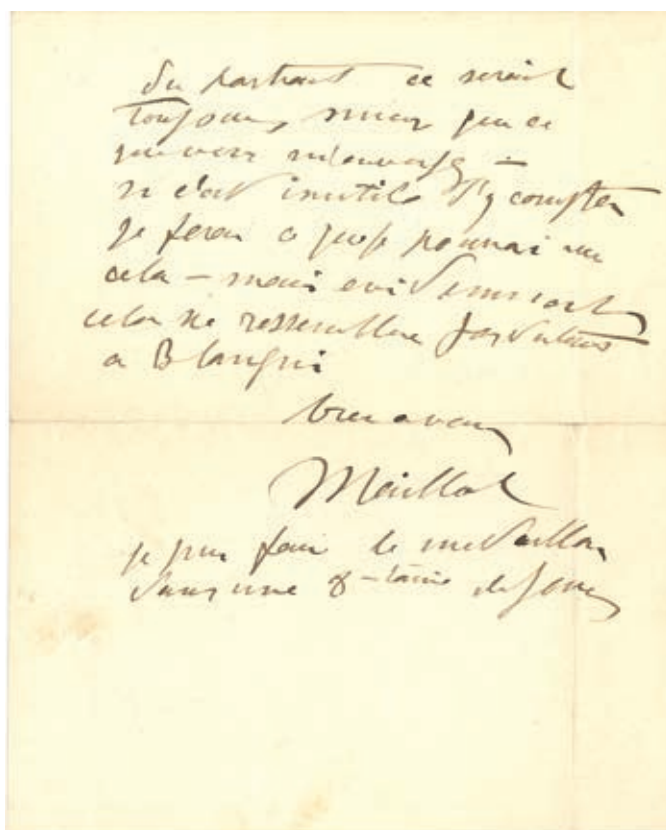 du portrait ce serait
toujours mieux que ce
que vous m'envoyez –
si c'est inutile d'y compter
je ferai ce que je pourrai sur
cela – mais evidemment
cela ne ressemblera pas
a Blanqui
bien a vous
Maillol
je puis faire le medaillon
dans une 8-taine de jours